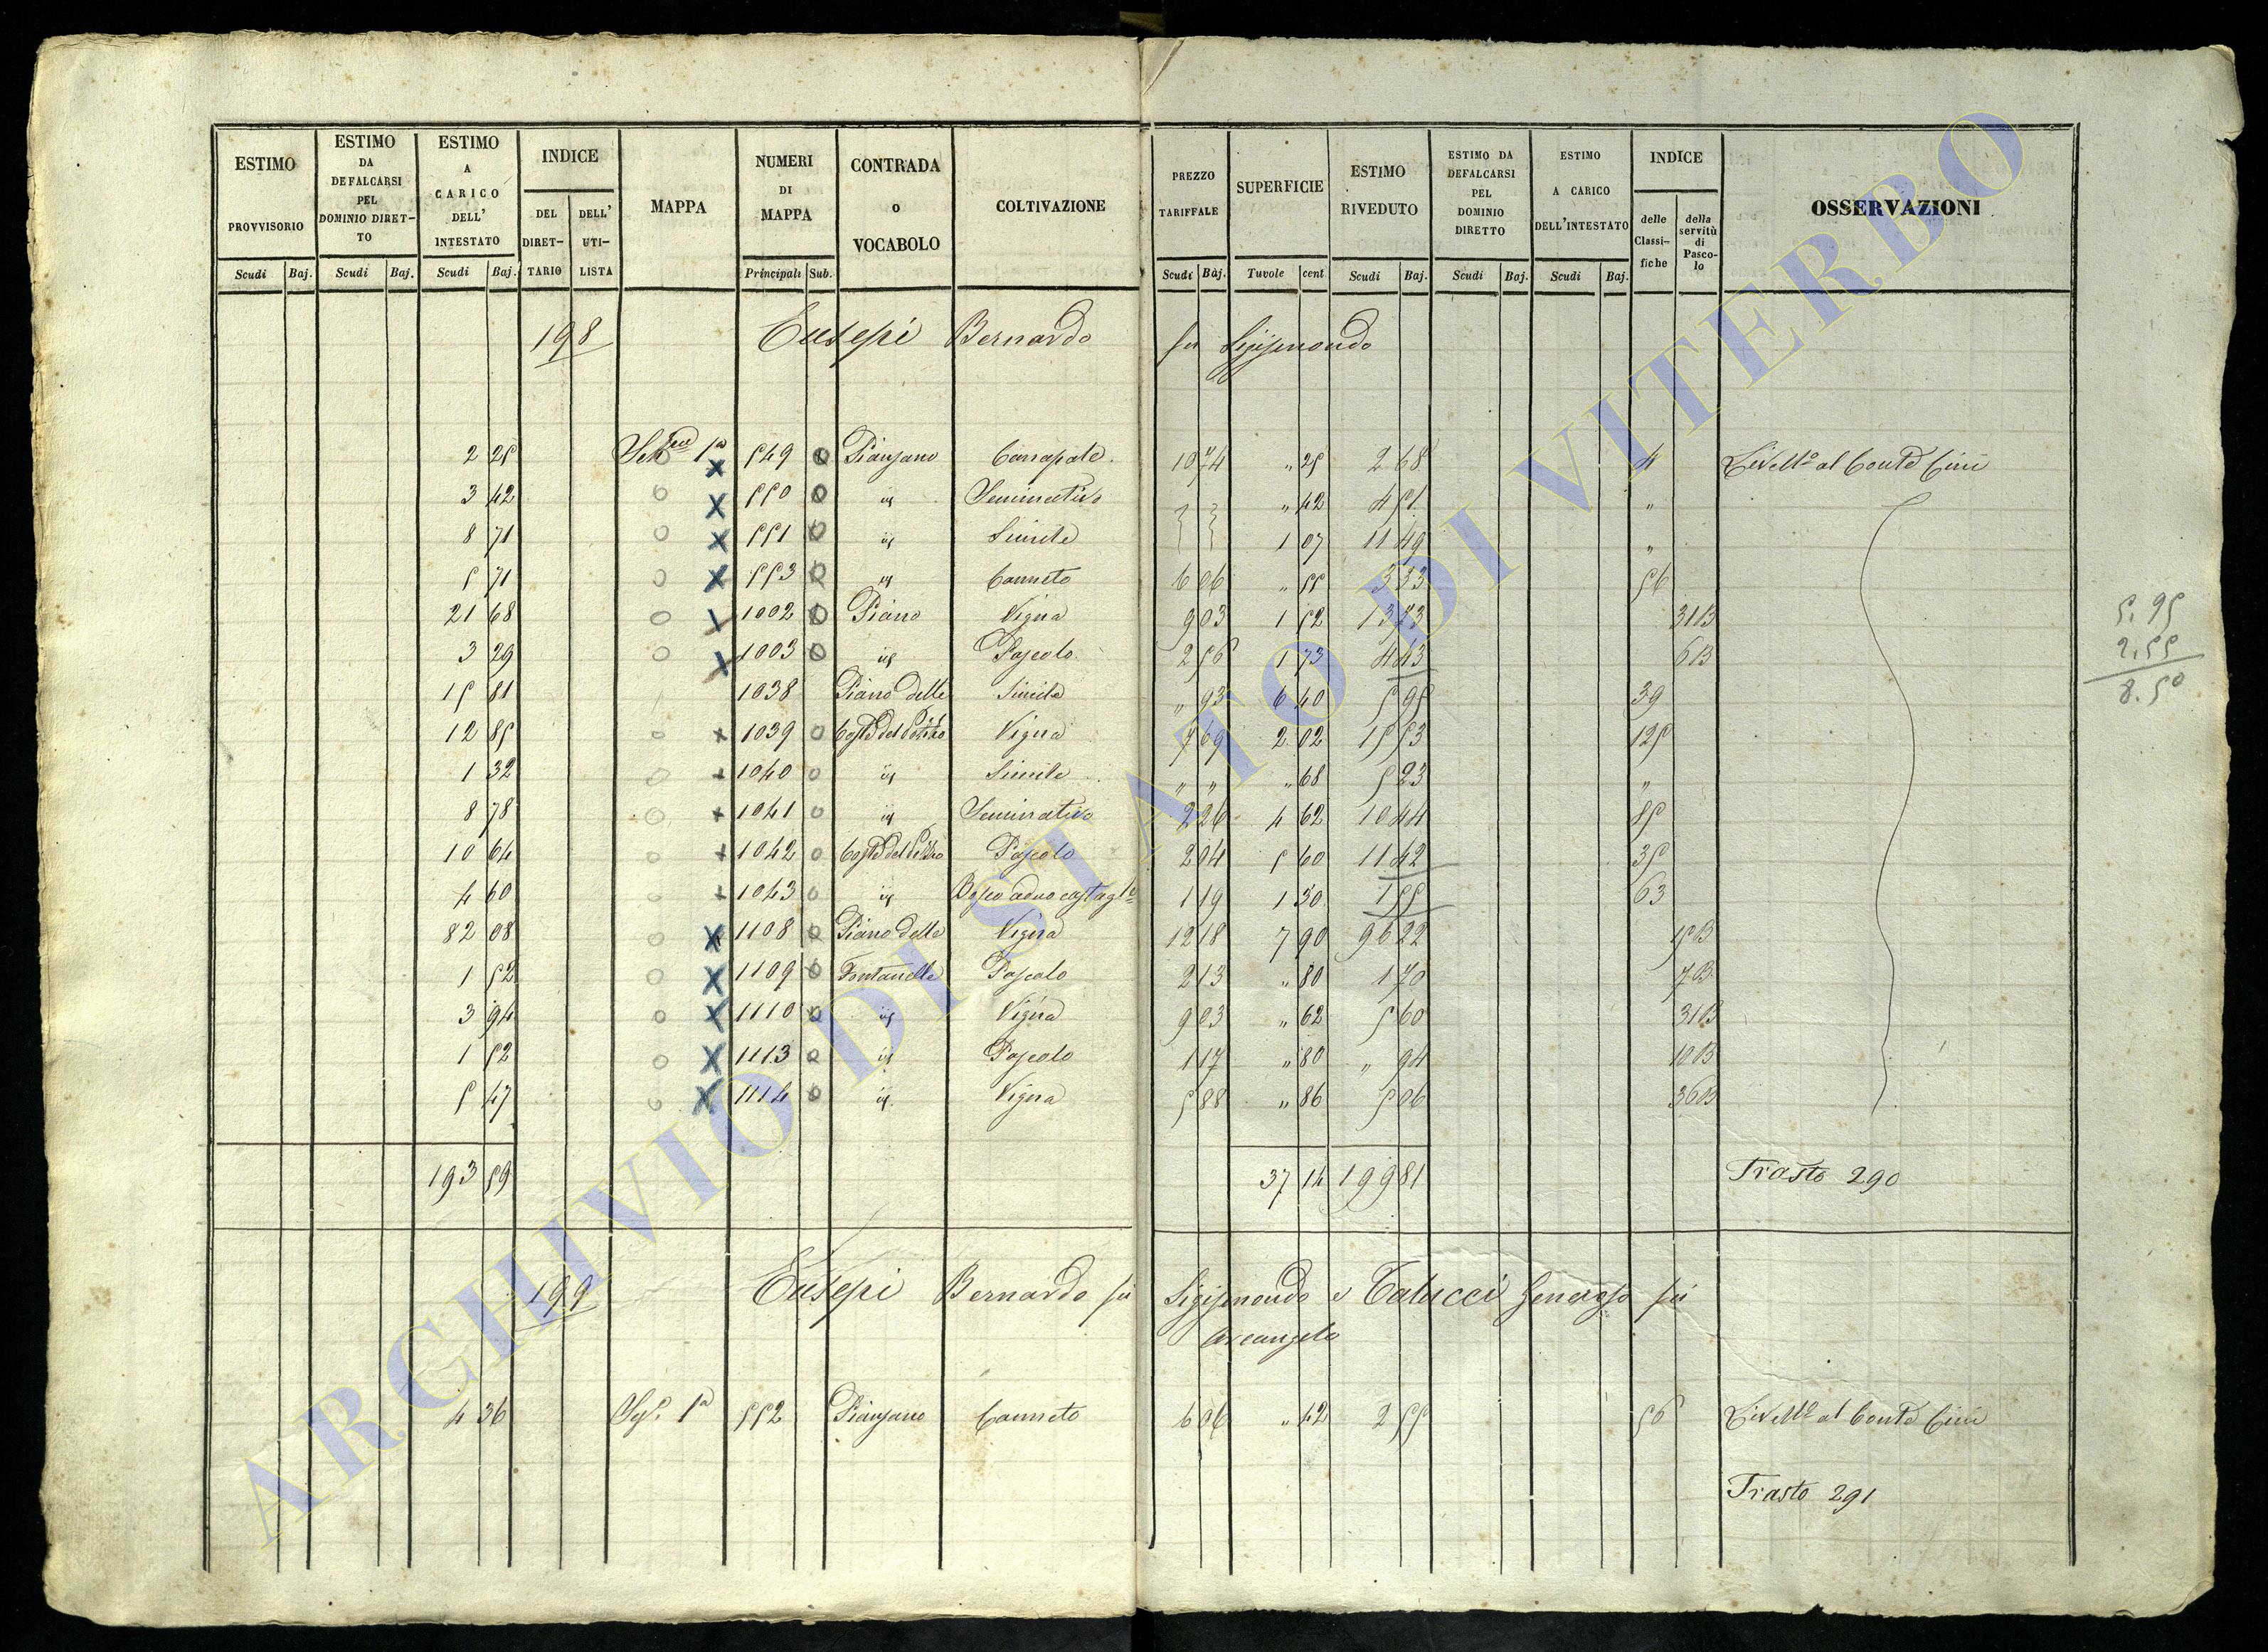 ESTIMO PROVVISORIO Scudi Baj.
ESTIMO DA DEFALCARSI PEL DOMINIO DIRET- TO Scudi Baj.
ESTIMO A CARICO DELL' INTESTATO Scudi Baj.
INDICE DEL DIRET- TARIO DELL' UTI- LISTA
MAPPA
NUMERI DI MAPPA Principali Sub.
CONTRADA O VOCABOLO
COLTIVAZIONE
PREZZO TARIFFALE Scudi Baj.
SUPERFICIE Tavole cent
ESTIMO RIVEDUTO Scudi Baj.
ESTIMO DA DEFALCARSI PEL DOMINIO DIRETTO Scudi Baj.
ESTIMO A CARICO DELL'INTESTATO Scudi Baj.
INDICE delle Classi- fiche della servitù di Pasco- lo
OSSERVAZIONI
198 Eusepi Bernardo fu Sigismondo
2 25 1a 549 0 Pianzano Cannapale 10 74 " 25 2 68 4 Livello al Conte Cini
3 42 550 0 id Seminativo " 42 4 51 "
8 71 551 0 id Simile 1 07 11 49 "
5 71 553 0 id Canneto 6 06 " 55 3 33 56
21 68 1002 0 Piano Vigna 9 03 1 52 13 73 31B
3 29 1003 0 id Pascolo 2 56 1 73 4 43 6B
15 81 1038 Piano delle Simile " 93 6 40 5 95 39
12 85 1039 0 Vigna 7 69 2 02 15 53 125
1 32 1040 0 id Simile " " " 68 5 23 "
8 78 1041 0 id Seminativo 2 26 4 62 10 44 85
10 64 1042 0 Pascolo 2 04 5 60 11 42 35
4 60 1043 0 id Bosco 1 19 1 30 1 55 63
82 08 1108 0 Piano delle Vigna 12 18 7 90 96 22 15B
1 52 1109 0 Fontanelle Pascolo 2 13 " 80 1 70 7B
3 94 1110 0 id Vigna 9 03 " 62 5 60 31B
1 52 1113 0 id Pascolo 1 17 " 80 " 94 10B
5 47 1114 0 id Vigna 5 88 " 86 5 06 36B
193 59 37 14 199 81 Trasto 290
5.95
2.55
8.50
199 Eusepi Bernardo fu Sigismondo e Catucci Generoso fu
Arcangelo
4 36 1a 552 Pianzano Canneto 6 06 " 42 2 55 56 Livello al Conte Cini
Trasto 291
ARCHIVIO DI STATO DI VITERBO